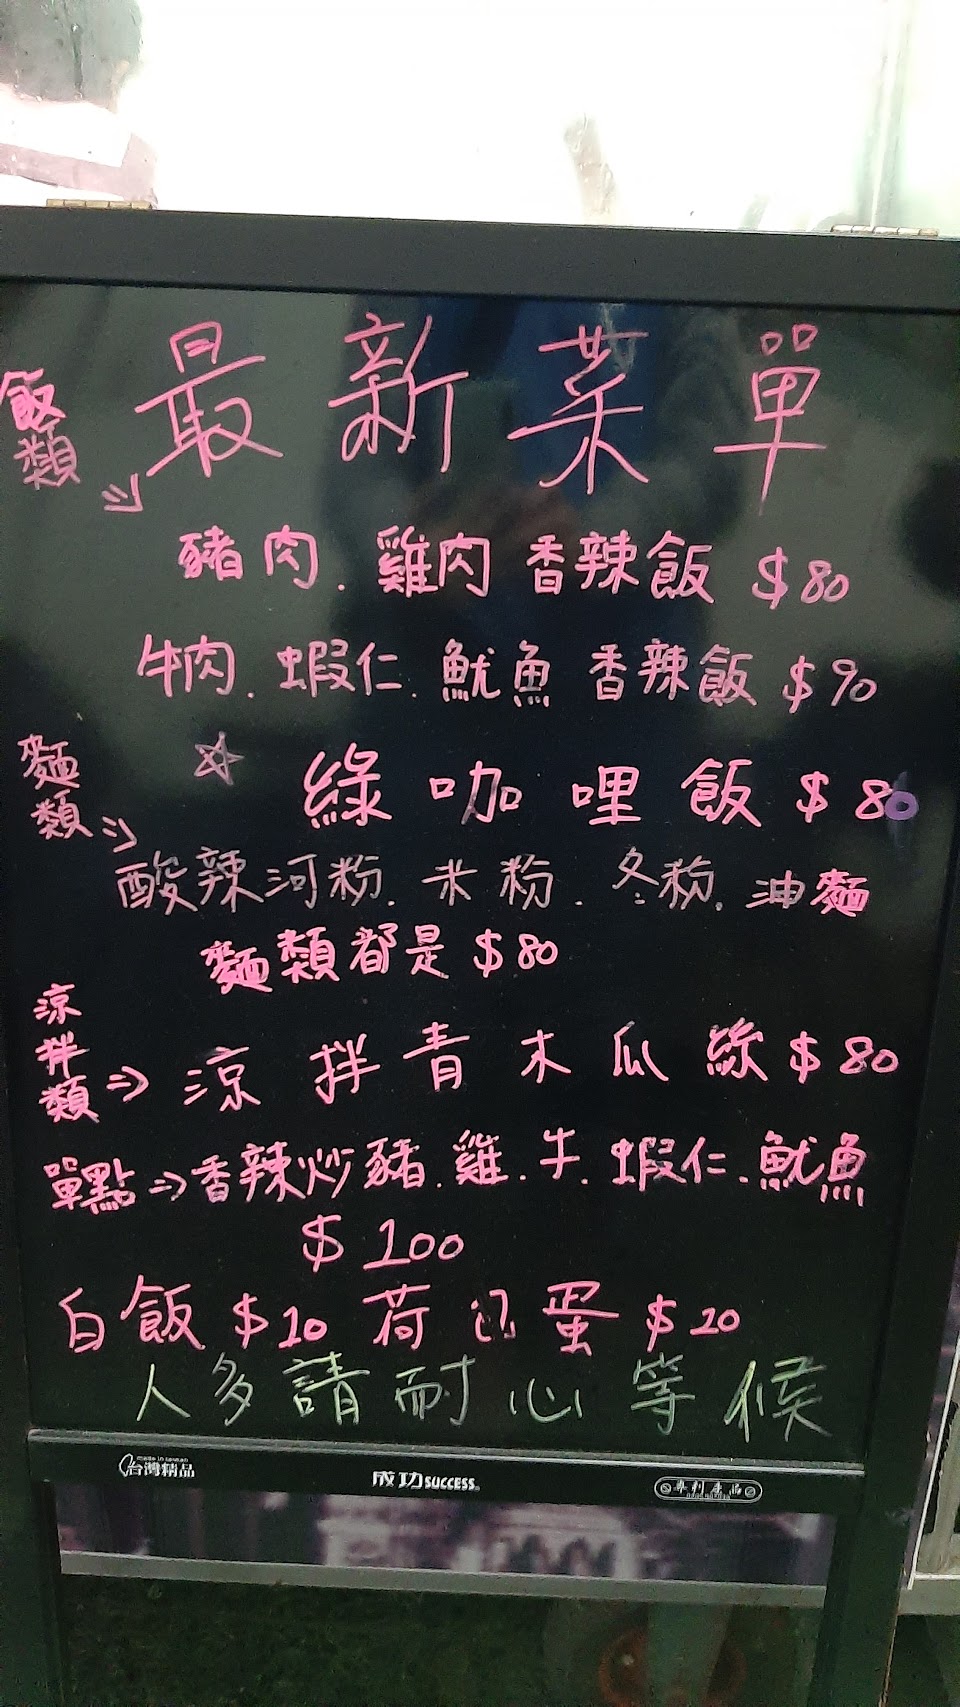 最新菜單
飯類⇒
豬肉.雞肉 香辣飯 $80
牛肉.蝦仁.魷魚 香辣飯 $90
☆ 綠咖哩飯 $80
麵類⇒
酸辣河粉.米粉.冬粉.油麵
麵類都是 $80
涼拌類⇒涼拌青木瓜絲 $80
單點⇒香辣炒豬.雞.牛.蝦仁.魷魚
$100
白飯 $10 荷包蛋 $20
人多請耐心等候
made in taiwan
台灣精品 成功 SUCCESS 專利產品